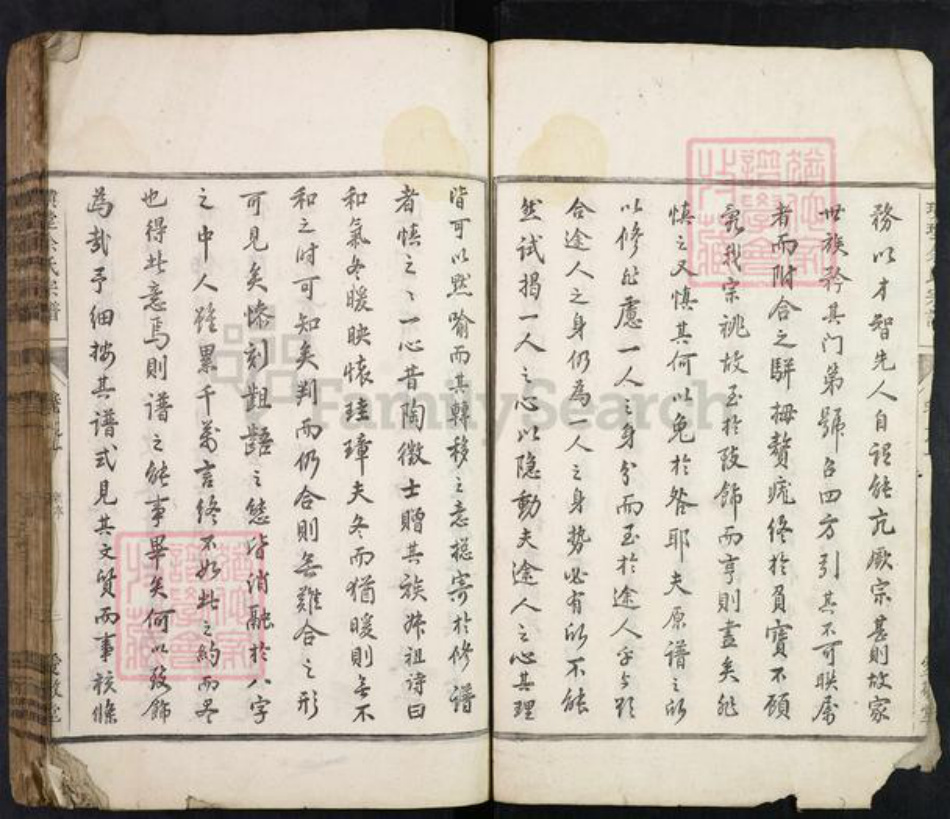 務以才智先人自詡能亢厥宗甚則故家
世族矜其门第號召四方引其不可联屬
者而附合之駢拇贅疣终於貟寳不顧
氣我宗祧故至於致飾而亨則盡矣能
慎之又慎其何以免於咎耶夫原譜之所
以修非慮一人之身分而至於途人乎与欤
合途人之身仍為一人之身勢必有所不能
然试揭一人之心以隐動夫途人之心其理
皆可以默喻而其轉移之意揔寄於修譜
者慎之之一心昔陶徵士贈其族姊祖诗曰
和氣冬暖映懷珪璋夫冬而猶暖則無不
和之时可知矣判而仍合則無難合之形
可見矣惨刻齟齬之態皆消融於八字
之中人雖累千萬言终不如此之約而尽
也得此意焉則譜之能事畢矣何以致飾
為哉予细按其谱式見其文质而事核條
宗譜
愛敬堂
Family Search